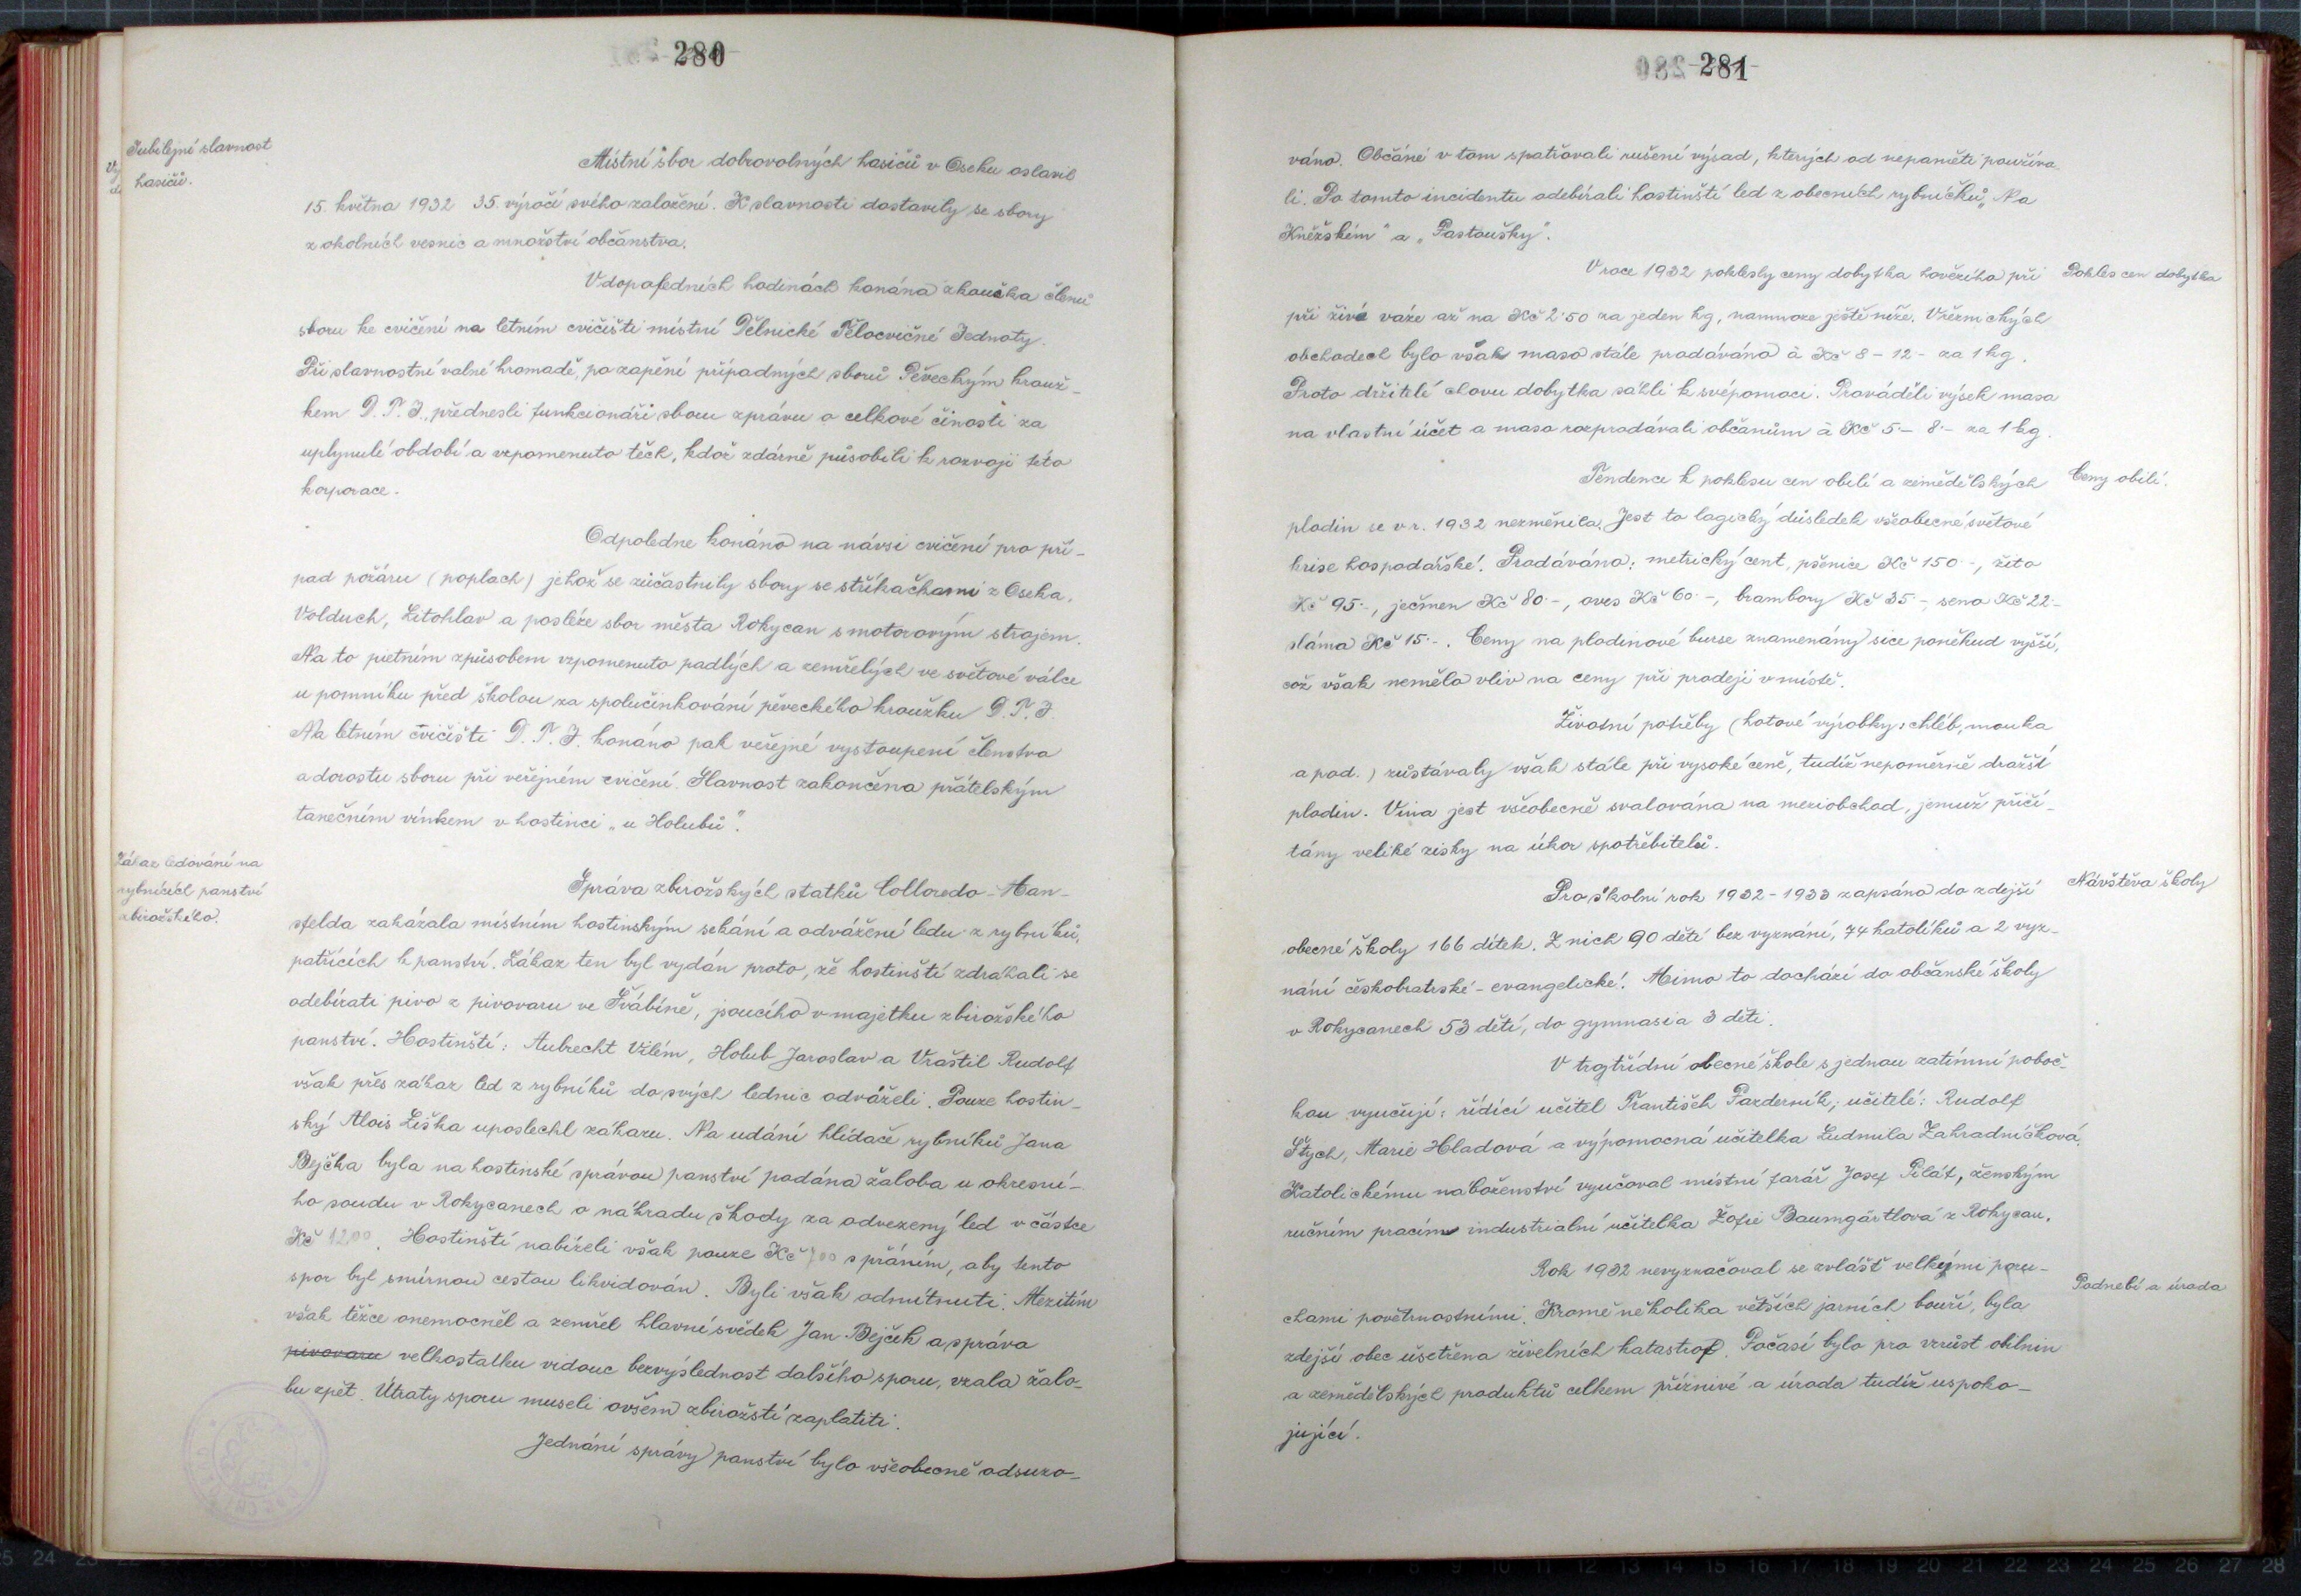 280
Jubilejní slavnost
hasičů.
Místní sbor dobrovolných hasičů v Oseku oslavil
15. května 1932 35. výročí svého založení. K slavnosti dostavily se sbory
z okolních vesnic a množství občanstva.
V dopoledních hodinách konána zkouška členů
sboru ke cvičení na letním cvičišti místní Dělnické Tělocvičné Jednoty.
Při slavnostní valné hromadě, po zapění případných sborů Pěveckým krouž-
kem D. T. J., přednesli funkcionáři sboru zprávu o celkové činosti za
uplynulé období a vzpomenuto těch, kdož zdárně působili k rozvoji této
korporace.
Odpoledne konáno na návsi cvičení pro pří-
pad požáru (poplach) jehož se zúčastnily sbory se stříkačkami z Oseka,
Volduch, Litohlav a posléze sbor města Rokycan s motorovým strojem.
Na to pietním způsobem vzpomenuto padlých a zemřelých ve světové válce
u pomníku před školou za spolučinkování pěveckého kroužku D. T. J.
Na letním cvičišti D. T. J. konáno pak veřejné vystoupení členstva
a dorostu sboru při veřejném cvičení. Slavnost zakončena přátelským
tanečním vínkem v hostinci „u Holubů".
Zákaz ledování na
rybnících panství
zbirožského.
Správa zbirožských statků Colloredo-Man-
sfelda zakázala místním hostinským sekání a odvážení ledu z rybníků,
patřících k panství. Zákaz ten byl vydán proto, že hostinští zdráhali se
odebírati pivo z pivovaru ve Švábíně, jsoucího v majetku zbirožského
panství. Hostinští: Aubrecht Vilém, Holub Jaroslav a Vraštil Rudolf
však přes zákaz led z rybníků do svých lednic odváželi. Pouze hostin-
ský Alois Liška uposlechl zákazu. Na udání hlídače rybníků Jana
Bejčka byla na hostinské správou panství podána žaloba u okresní-
ho soudu v Rokycanech o náhradu škody za odvezený led v částce
Kč 1200. Hostinští nabízeli však pouze Kč s přáním, aby tento
spor byl smírnou cestou likvidován. Byli však odmítnuti. Mezitím
však těžce onemocněl a zemřel hlavní svědek Jan Bejček a správa
pivovaru velkostatku vidouc bezvýslednost dalšího sporu, vzala žalo-
bu zpět. Útraty sporu museli ovšem zbirožští zaplatiti.
Jednání správy panství bylo všeobecně odsuzo-
281
váno. Občáné v tom spatřovali rušení výsad, kterých od nepaměti používa-
li. Po tomto incidentu odebírali hostinští led z obecních rybníčků „Na
Kněžském" a „Pastoušky".
V roce 1932 poklesly ceny dobytka hovězího při
Pokles cen dobytka
při živé váze až na Kč 2·50 za jeden kg, namnoze ještě níže. V řeznických
obchodech bylo však maso stále prodáváno à Kč 8 – 12 - za 1 kg.
Proto držitelé chovu dobytka sáhli k svépomoci. Prováděli výsek masa
na vlastní účet a maso rozprodávali občanům à Kč 5.– 8.– za 1 kg.
Tendence k poklesu cen obilí a zemědělských
Ceny obilí.
plodin se v r. 1932 nezměnila. Jest to logický důsledek všeobecné světové
krise hospodářské. Prodávána: metrický cent, pšenice Kč 150·-, žito
Kč 95·-, ječmen Kč 80·-, oves Kč 60·-, brambory Kč 35·-, seno Kč 22·-
sláma Kč 15·-. Ceny na plodinové burse znamenány sice poněkud vyšší,
což však nemělo vliv na ceny při prodeji v místě.
Životní potřeby (hotové výrobky: chléb, mouka
a pod.) zůstávaly však stále při vysoké ceně, tudíž nepoměrně dražší
plodin. Vina jest všeobecně svalována na meziobchod, jemuž přičí-
tány veliké zisky na úkor spotřebitelů.
Pro školní rok 1932-1933 zapsáno do zdejší
Návštěva školy
obecné školy 166 dítek. Z nich 90 dětí bez vyznání, 74 katolíků a 2 vyz-
nání českobratrské-evangelické. Mimo to dochází do občanské školy
v Rokycanech 53 dětí, do gymnasia 3 děti.
V trojtřídní obecné škole s jednou zatímní poboč-
kou vyučují: řídící učitel František Pazderník; učitelé: Rudolf
Štych, Marie Hladová a výpomocná učitelka Ludmila Zahradníčková.
Katolickému náboženství vyučoval místní farář Josef Pilát, ženským
ručním pracím industrialní učitelka Žofie Baumgärtlová z Rokycan.
Rok 1932 nevyznačoval se zvlášť velkými poru-
Podnebí a úroda
chami povětrnostními. Kromě několika větších jarních bouří, byla
zdejší obec ušetřena živelních katastrof. Počasí bylo pro vzrůst obilnin
a zemědělských produktů celkem příznivé a úroda tudíž uspoko-
jující.